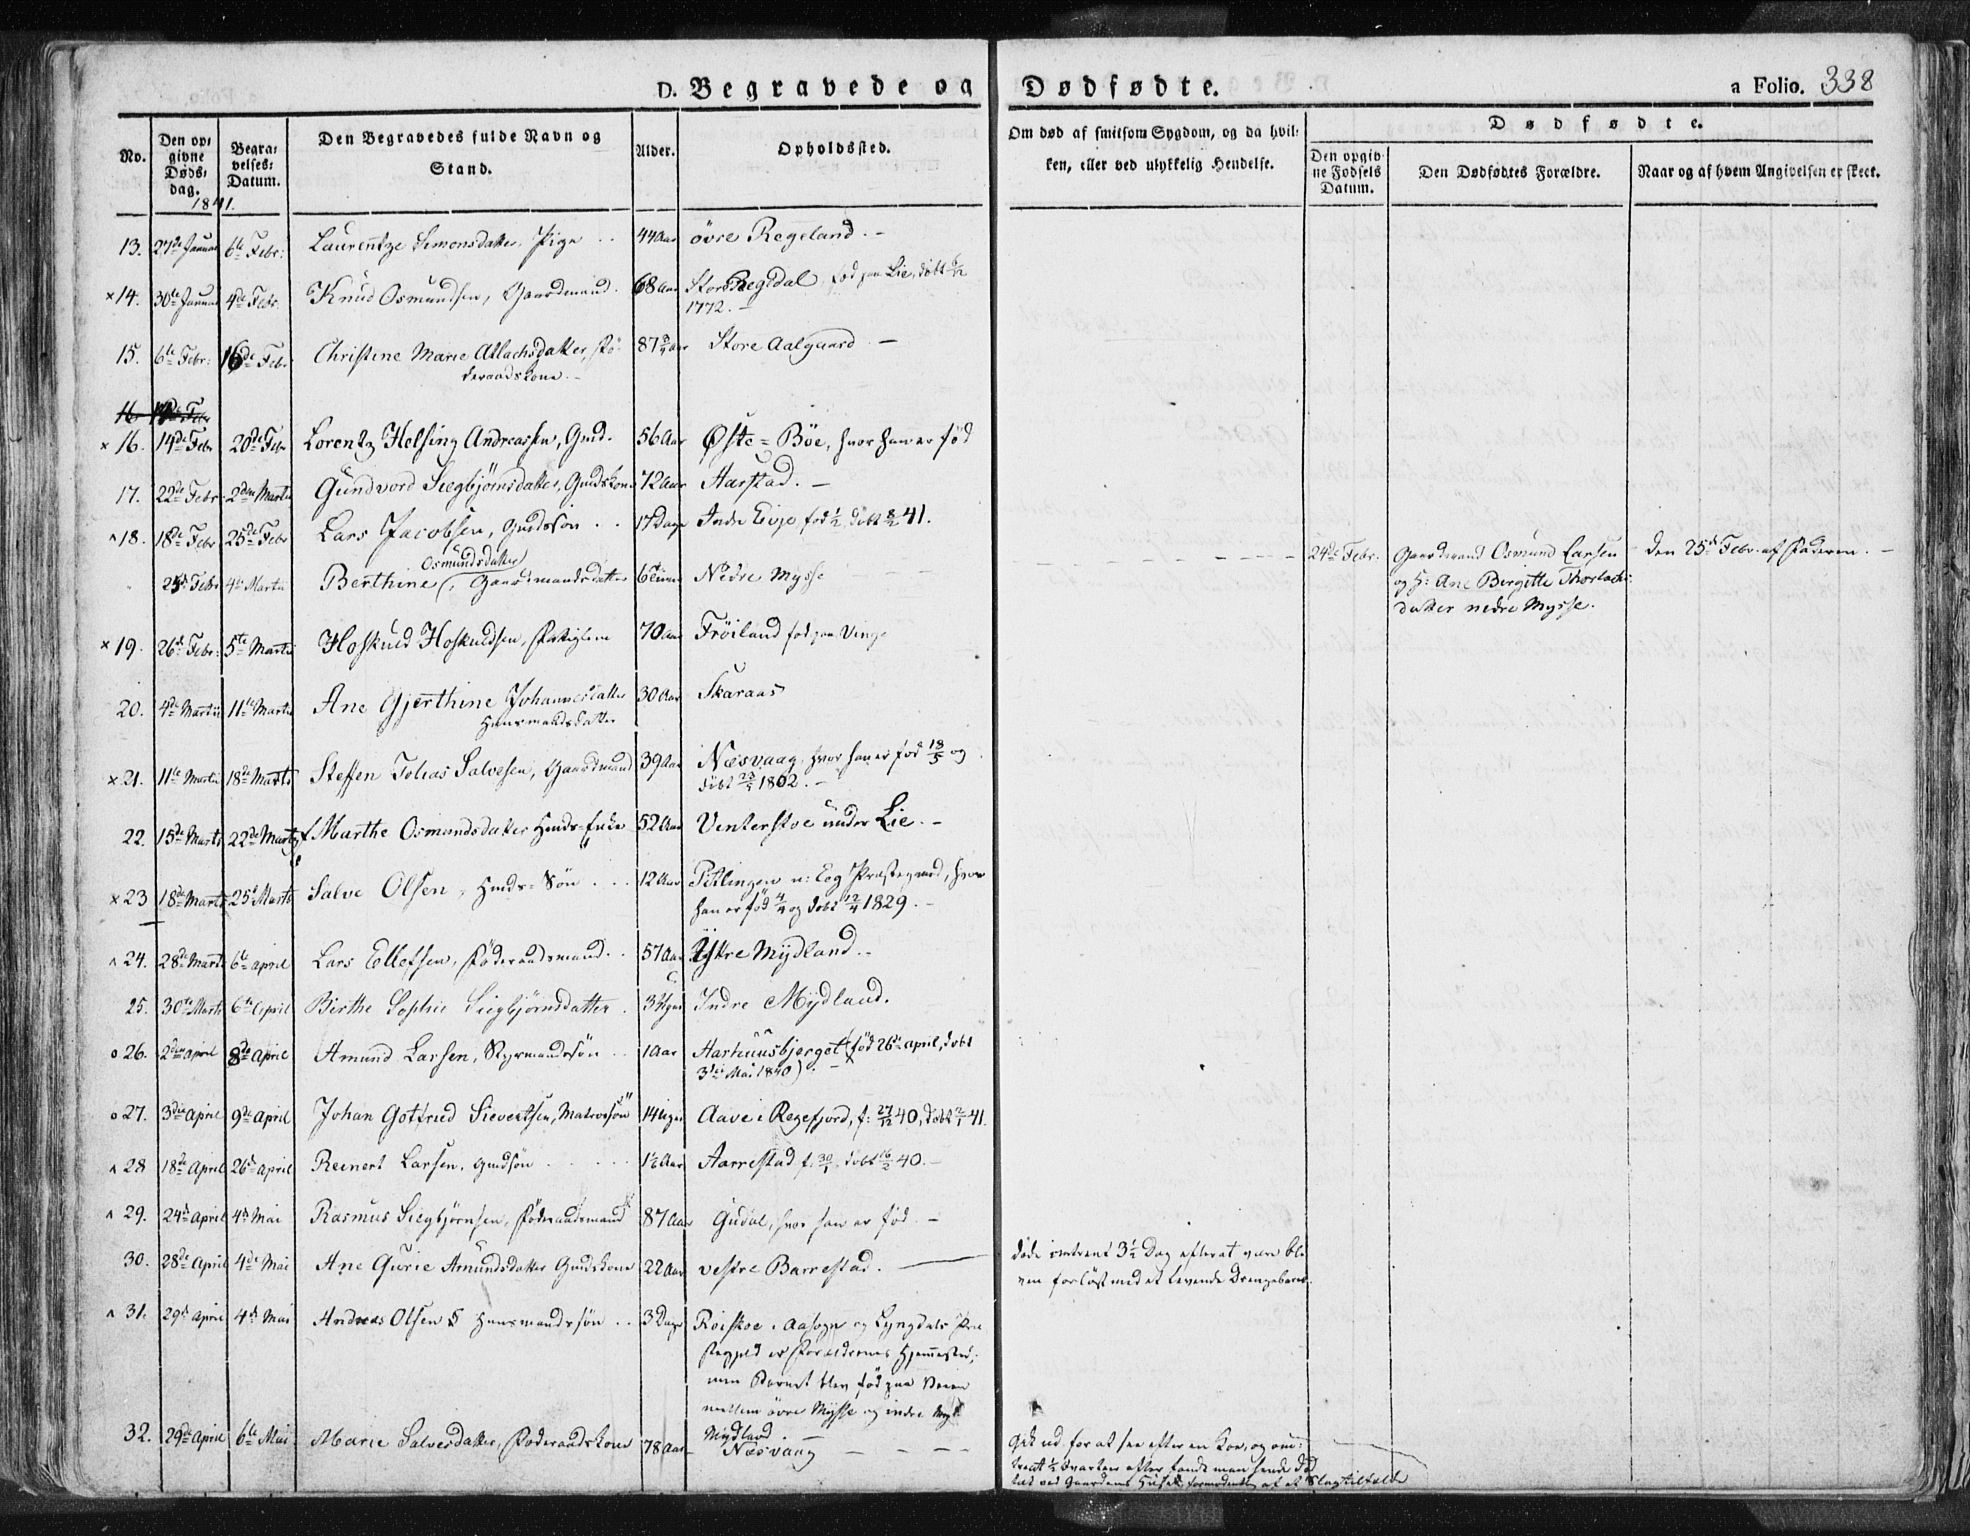 D. Begravede og Dødfødte. a Folio. 338
No. Den opgivne Dødsdag. Begravelses-Datum. Den Begravedes fulde Navn og Stand. Alder. Opholdssted. Om død af smitsom Sygdom, og da hvilken, eller ved ulykkelig Hendelse. Dødfødte. Den opgivne Fødsels Datum. Den Dødfødtes Forældre. Naar og af hvem Angivelsen er skeet.
1841.
13. 27de Januar 6te Febr: Laurentze Simonsdatter, Pige 44 Aar øvre Regeland. –
× 14. 30te Januar 4de Febr. Knud Osmundsen, Gaardmand. 68 Aar Store Regedal, fød paa Lie, døbt 6/12
1772. –
15. 6te Febr. 16de Febr Christine Marie Atlachsdatter, Fö-
deraadskone – 87 3/4 aar Store Aalgaard –
16 Febr
× 16. 14de Febr 20de Febr Lorentz Helsing Andreassen, Gmd. 56 Aar Øste = Böe, hvor han er född
17. 22de Febr 2den Martii Gundvord Siegbjörnsdatter, Gmdskone 72 Aar Harstad. –
^ 18. 18de Febr 25de Febr Lars Jacobsen, Gmdssön 17 Dage Indre Eige, fød 1/2, døbt 8/2 41.
Osmundsdatter
25de Febr 4de Martii Berthine, Gaardmandsdatter 6 Timer Nedre Mysse
24de Febr. Gaardmand Osmund Larsen den 25de Febr. af Faderen. –
og H: Ane Birgitte Thorlachs-
datter nedre Mysse.
× 19. 26de Febr: 5te Martii Hoskuld Hoskuldsen, Fattiglem 70 Aar Fröiland fød paa Vinge
20. 4de Martii 11te Martii Ane Gjerthine Johannesdatter
Huusmandsdatter 30 Aar Skaraas
× 21. 11te Martii 18de Martii Steffen Tobias Salvesen, Gaardmand 39 Aar Næsvaag, hvor han er fød 18/5 og
döbt 23/5 1802. –
22. 15de Martii 22de Martii Marthe Osmundsdatter Hmds-Enke 52 Aar Venterstoe under Lie. –
× 23 18de Martii 25de Martii Salve Olsen, Hmds-Sön 12 Aar Pitlingen u: Eeg Præstegaard, hvor
han er fød 4/4 og døbt 12/4 1829. –
^ 24. 28de Martii 6te april Lars Ellefsen, Föderaadsmand 57 Aar Ÿstre Mÿdland. –
25. 30te Martii 6te April Birthe Sophie Siegbjörnsdatter. 3 Uger Indre Mÿdland.
o 26. 2den april 8de Aprile Amund Larsen, Styrmandssön 1 Aar Aarhuusbjerget (född 26de april, døbt
3die Mai 1840). –
o 27. 3die April 9de April Johan Gotfried Sievertsen, Matrossön 14 Uger Aave i Regefjord, f: 27/12 40, døbt 2/1 41.
^ 28 18de April 26de April Reinert Larsen, Gmdsön 1 1/2 Aar Aarrestad f. 30/1, døbt 16/2 40. –
^ 29. 24de April 4de Mai Rasmus Siegbjörnsen, Föderaadsmand 87 Aar Gudal, hvor han er fød. –
30. 28de April 4de Mai Ane Gurie Amundsdatter Gmdskone 22 Aar vestre Barrestad. – døde omtrent 3 1/2 Dag efterat være ble-
ven forløst med et levende Drengebarn.
^ 31. 29de april 4de Mai Andreas Olsen § Huusmandssön 3 Dage Röiskoe i Aasogn og Lyngdals Præ-
stegjeld er Forældrenes Hjemsted;
men Barnet blev född paa Veien
mellem øvre Mysse og indre Myd
Mydland. –
32. 29de April 6te Mai Marie Salvesdatter, Föderaadskone 78 Aar Næsvaag – – – – Gik ud for at see efter en Koe, og om-
trent 1/2 Qvarteer efter fandt man hende død
tæt ved Gaardens Huse, formodentlig af et Slagtilfælde